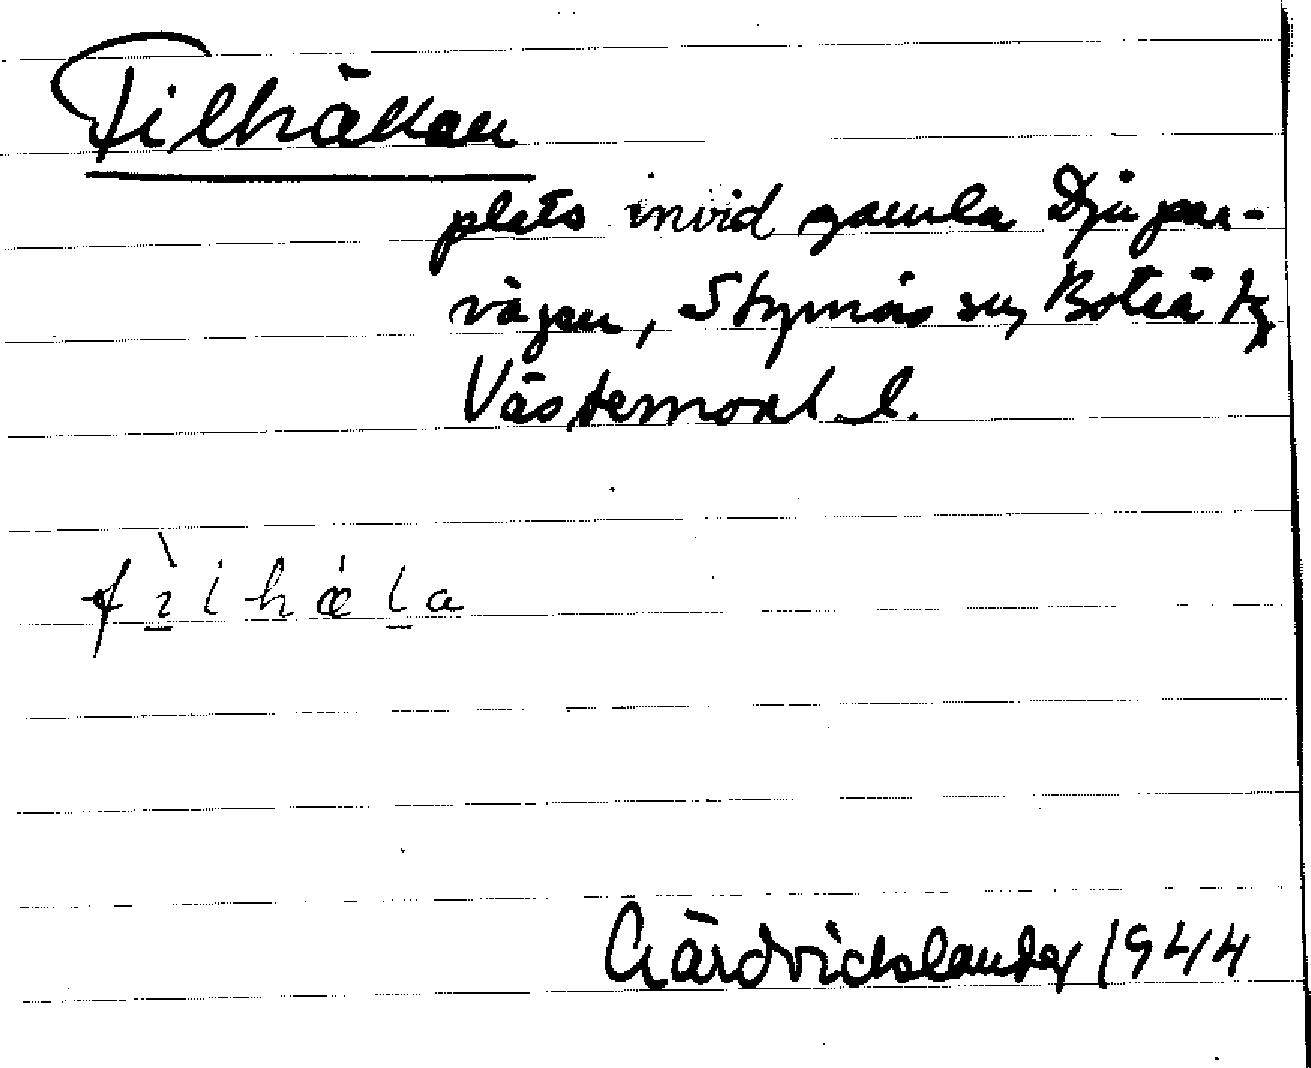 Filhällan
plats invid gamla Djupa-
vägen, Styrnäs sn, Boteå tg
Västernorrl. l.
fìlhǽla
Gärdvidslander 1944